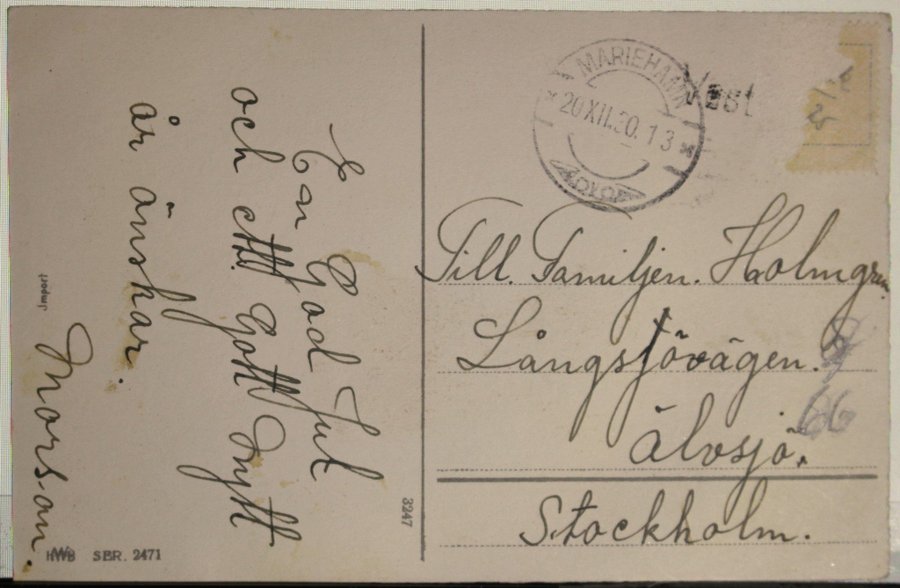 En God Jul
och ett Gott Nytt
år önskar.
Morsan.
Import
HWB SER. 2471
3247
MARIEHAMN
20 XII.30.13
Till. Familjen. Holmgren.
Långsjövägen.
66
Älvsjö.
Stockholm.